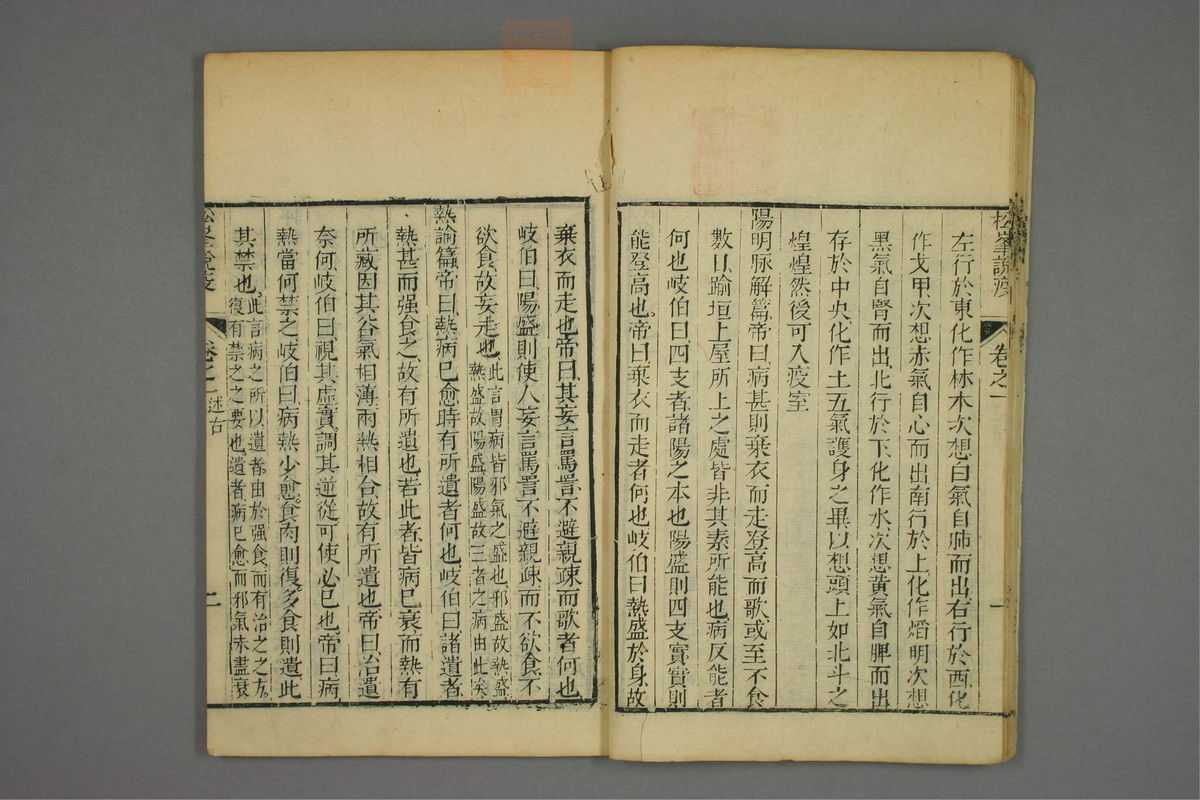 左行於東化作林木次想白氣自肺而出右行於西化
作戈甲次想赤氣自心而出南行於上化作熖明次想
黑氣自腎而出北行於下化作水次想黃氣自脾而出
存於中央化作土五氣護身之畢以想頭上如北斗之
煌煌然後可入疫室
陽明脉解篇帝曰病甚則棄衣而走登高而歌或至不食
數日踰垣上屋所上之處皆非其素所能也病反能者
何也岐伯曰四支者諸陽之本也陽盛則四支實實則
能登高也帝曰棄衣而走者何也岐伯曰熱盛於身故
松峯說疫
卷之一
一
棄衣而走也帝曰其妄言罵詈不避親疎而歌者何也
岐伯曰陽盛則使人妄言罵詈不避親疎而不欲食不
欲食故妄走也此言胃病皆邪氣之盛也邪盛故熱盛
熱盛故陽盛陽盛故三者之病由此矣
熱論篇帝曰熱病已愈時有所遺者何也岐伯曰諸遺者
熱甚而强食之故有所遺也若此者皆病已衰而熱有
所藏因其谷氣相薄兩熱相合故有所遺也帝曰治遺
奈何岐伯曰視其虛實調其逆從可使必已也帝曰病
熱當何禁之岐伯曰病熱少愈食肉則復多食則遺此
其禁也此言病之所以遺者由於强食而有治之之方
復有禁之之要也遺者病已愈而邪氣未盡衰
松峯說疫
卷之一
述古
二